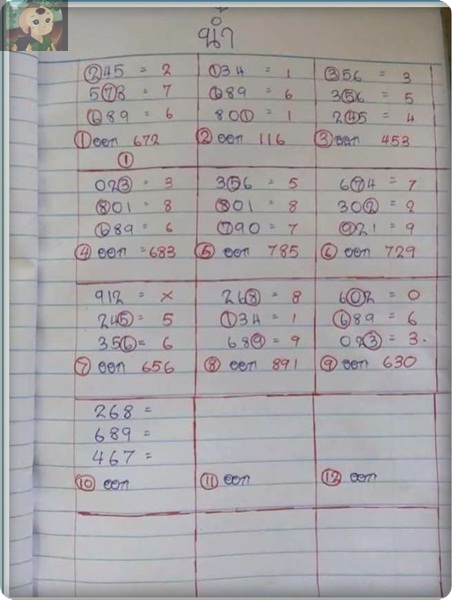 น้ำ
245 = 2
578 = 7
689 = 6
① ออก 672
①
134 = 1
689 = 6
801 = 1
② ออก 116
356 = 3
356 = 5
245 = 4
③ ออก 453
023 = 3
801 = 8
689 = 6
④ ออก = 683
356 = 5
801 = 8
790 = 7
⑤ ออก 785
674 = 7
302 = 2
921 = 9
⑥ ออก 729
912 = x
245 = 5
356 = 6
⑦ ออก 656
268 = 8
134 = 1
689 = 9
⑧ ออก 891
602 = 0
689 = 6
023 = 3.
⑨ ออก 630
268 =
689 =
467 =
⑩ ออก
⑪ ออก
⑫ ออก